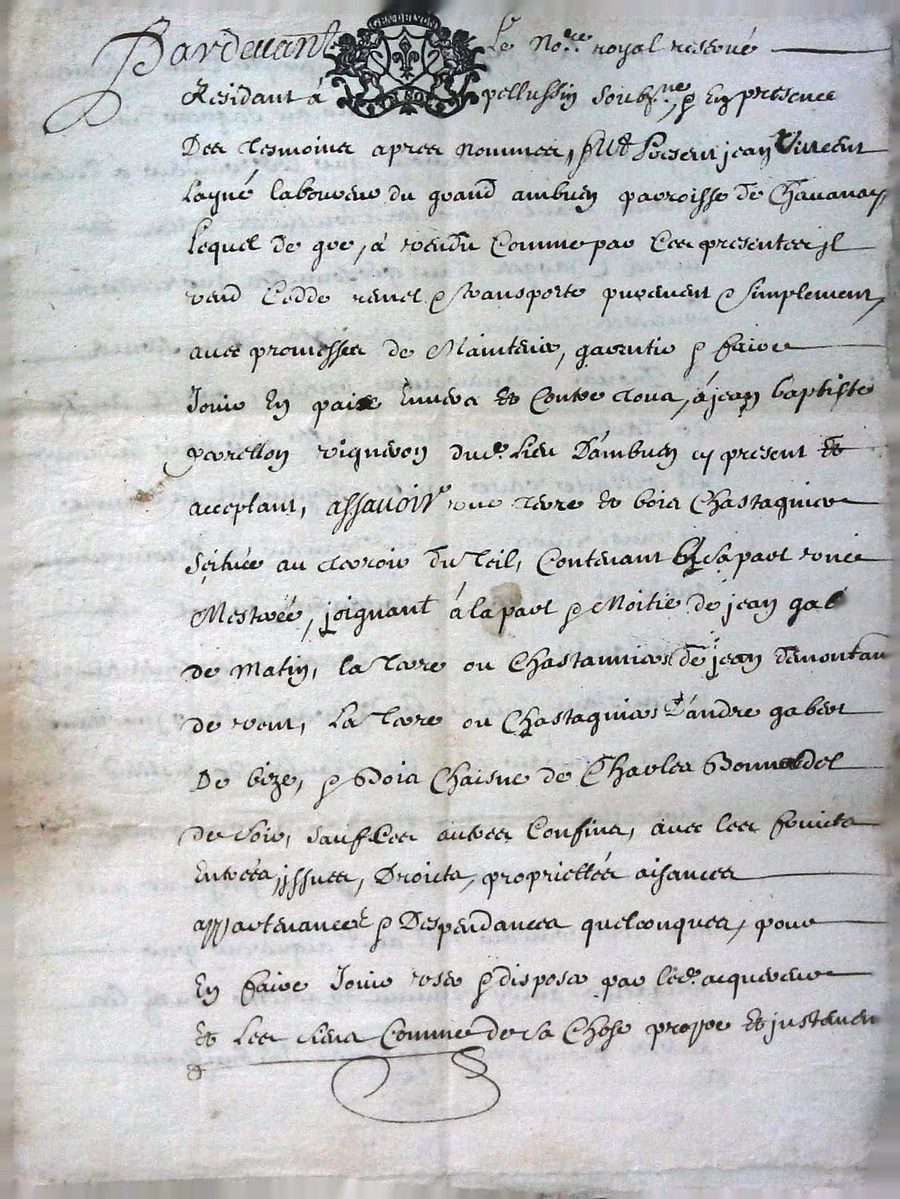 Pardevant Le No.re royal reservé
Residant á pellussin soubz.né, & En presence
Des tesmoins apres nommes, fut present jean Vincent
Layné laboureur du grand ambuen parroisse de Chavanay
lequel de gre, á vendu Comme par Ces presentes jl
vend Cedde remet & transporte purement & simplement,
avec promesse de Maintenir, garentir & faire
Jouir En paix Envers et Contre tous, á jean baptiste
vigneron dud. Lieu D'ambuen cy present et
acceptant, assavoir vne terre et bois Chastagnier
scituée au terroir du Teil, Contenant sa part vne
Mestreé, joignant á la part & Moitie de jean gab
de matin, la terre ou Chastannier de jean demontan
de vent, La terre ou Chastagnier d'andre gabert
De bize, & bois Chaisne de Charles Bonnardel
de soir, sauf Les autres Confins, avec les fruicts
Entreés, jssues, Droicts, proprietés aisances
appartenances & Despendances quelconques, pour
En faire Jouir vser & disposer par led. acquereur
et Les siens Comme de sa Chose propre et justement